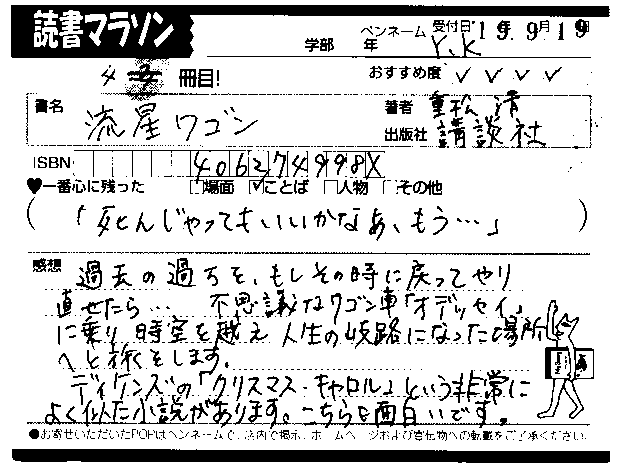 読書マラソン
学部 年 ペンネーム Y.K 受付日'19年9月19
4 冊目! おすすめ度 ✓ ✓ ✓ ✓
書名 流星ワゴン 著者 重松 清
出版社 講談社
ISBN 406274998X
♥一番心に残った □場面 ☑ことば □人物 □その他
(「死んじゃってもいいかなあ、もう…」)
感想 過去の過ちを、もしその時に戻ってやり
直せたら… 不思議なワゴン車「オデッセイ」
に乗り時空を越え人生の岐路になった場所
へと旅をします。
ディケンズの「クリスマス・キャロル」という非常に
よく似た小説があります。こちらも面白いです。
●お寄せいただいたPOPはペンネームで、店内で掲示、ホームページおよび宣伝物への転載をご了承ください。